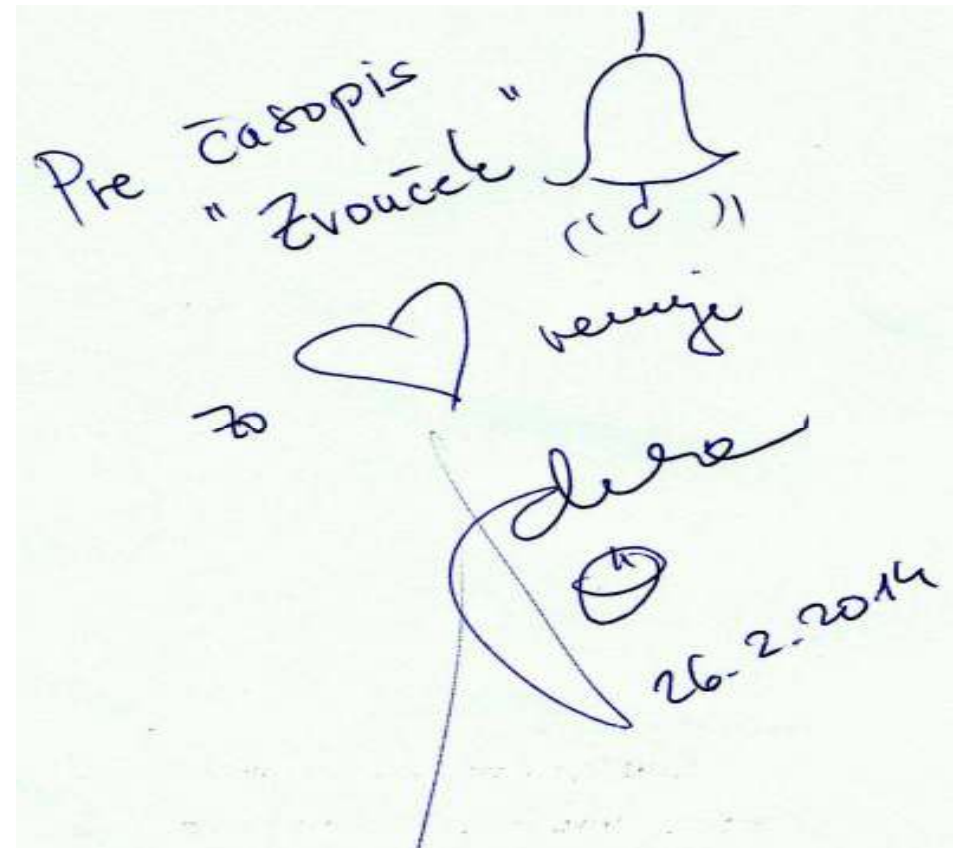 Pre časopis
"Zvouček"
zo
venuje
26.2.2014